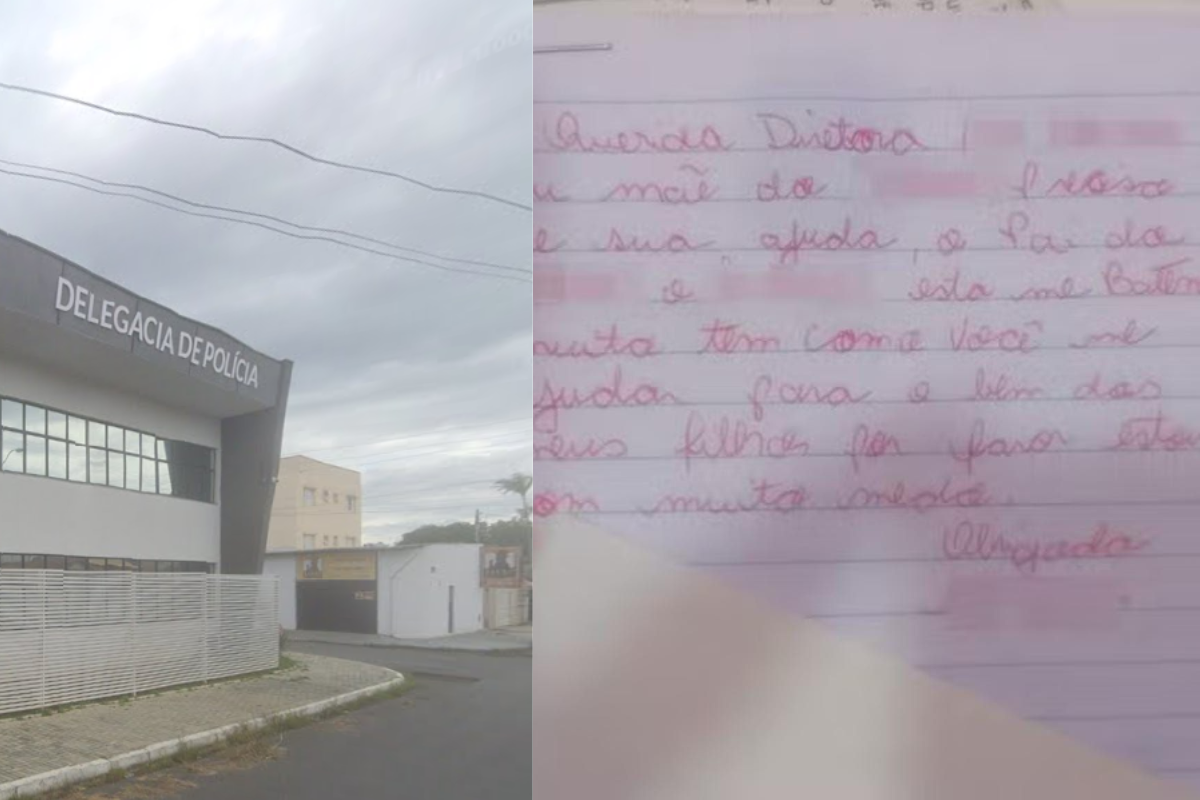 DELEGACIA DE POLÍCIA
Querida Diretora
u mãe do preciso
e sua ajuda, o Pai do
e esta me Baten
muito tem como você me
judar para o bem dos
eus filhos por favor estou
om muito medo.
Obrigada